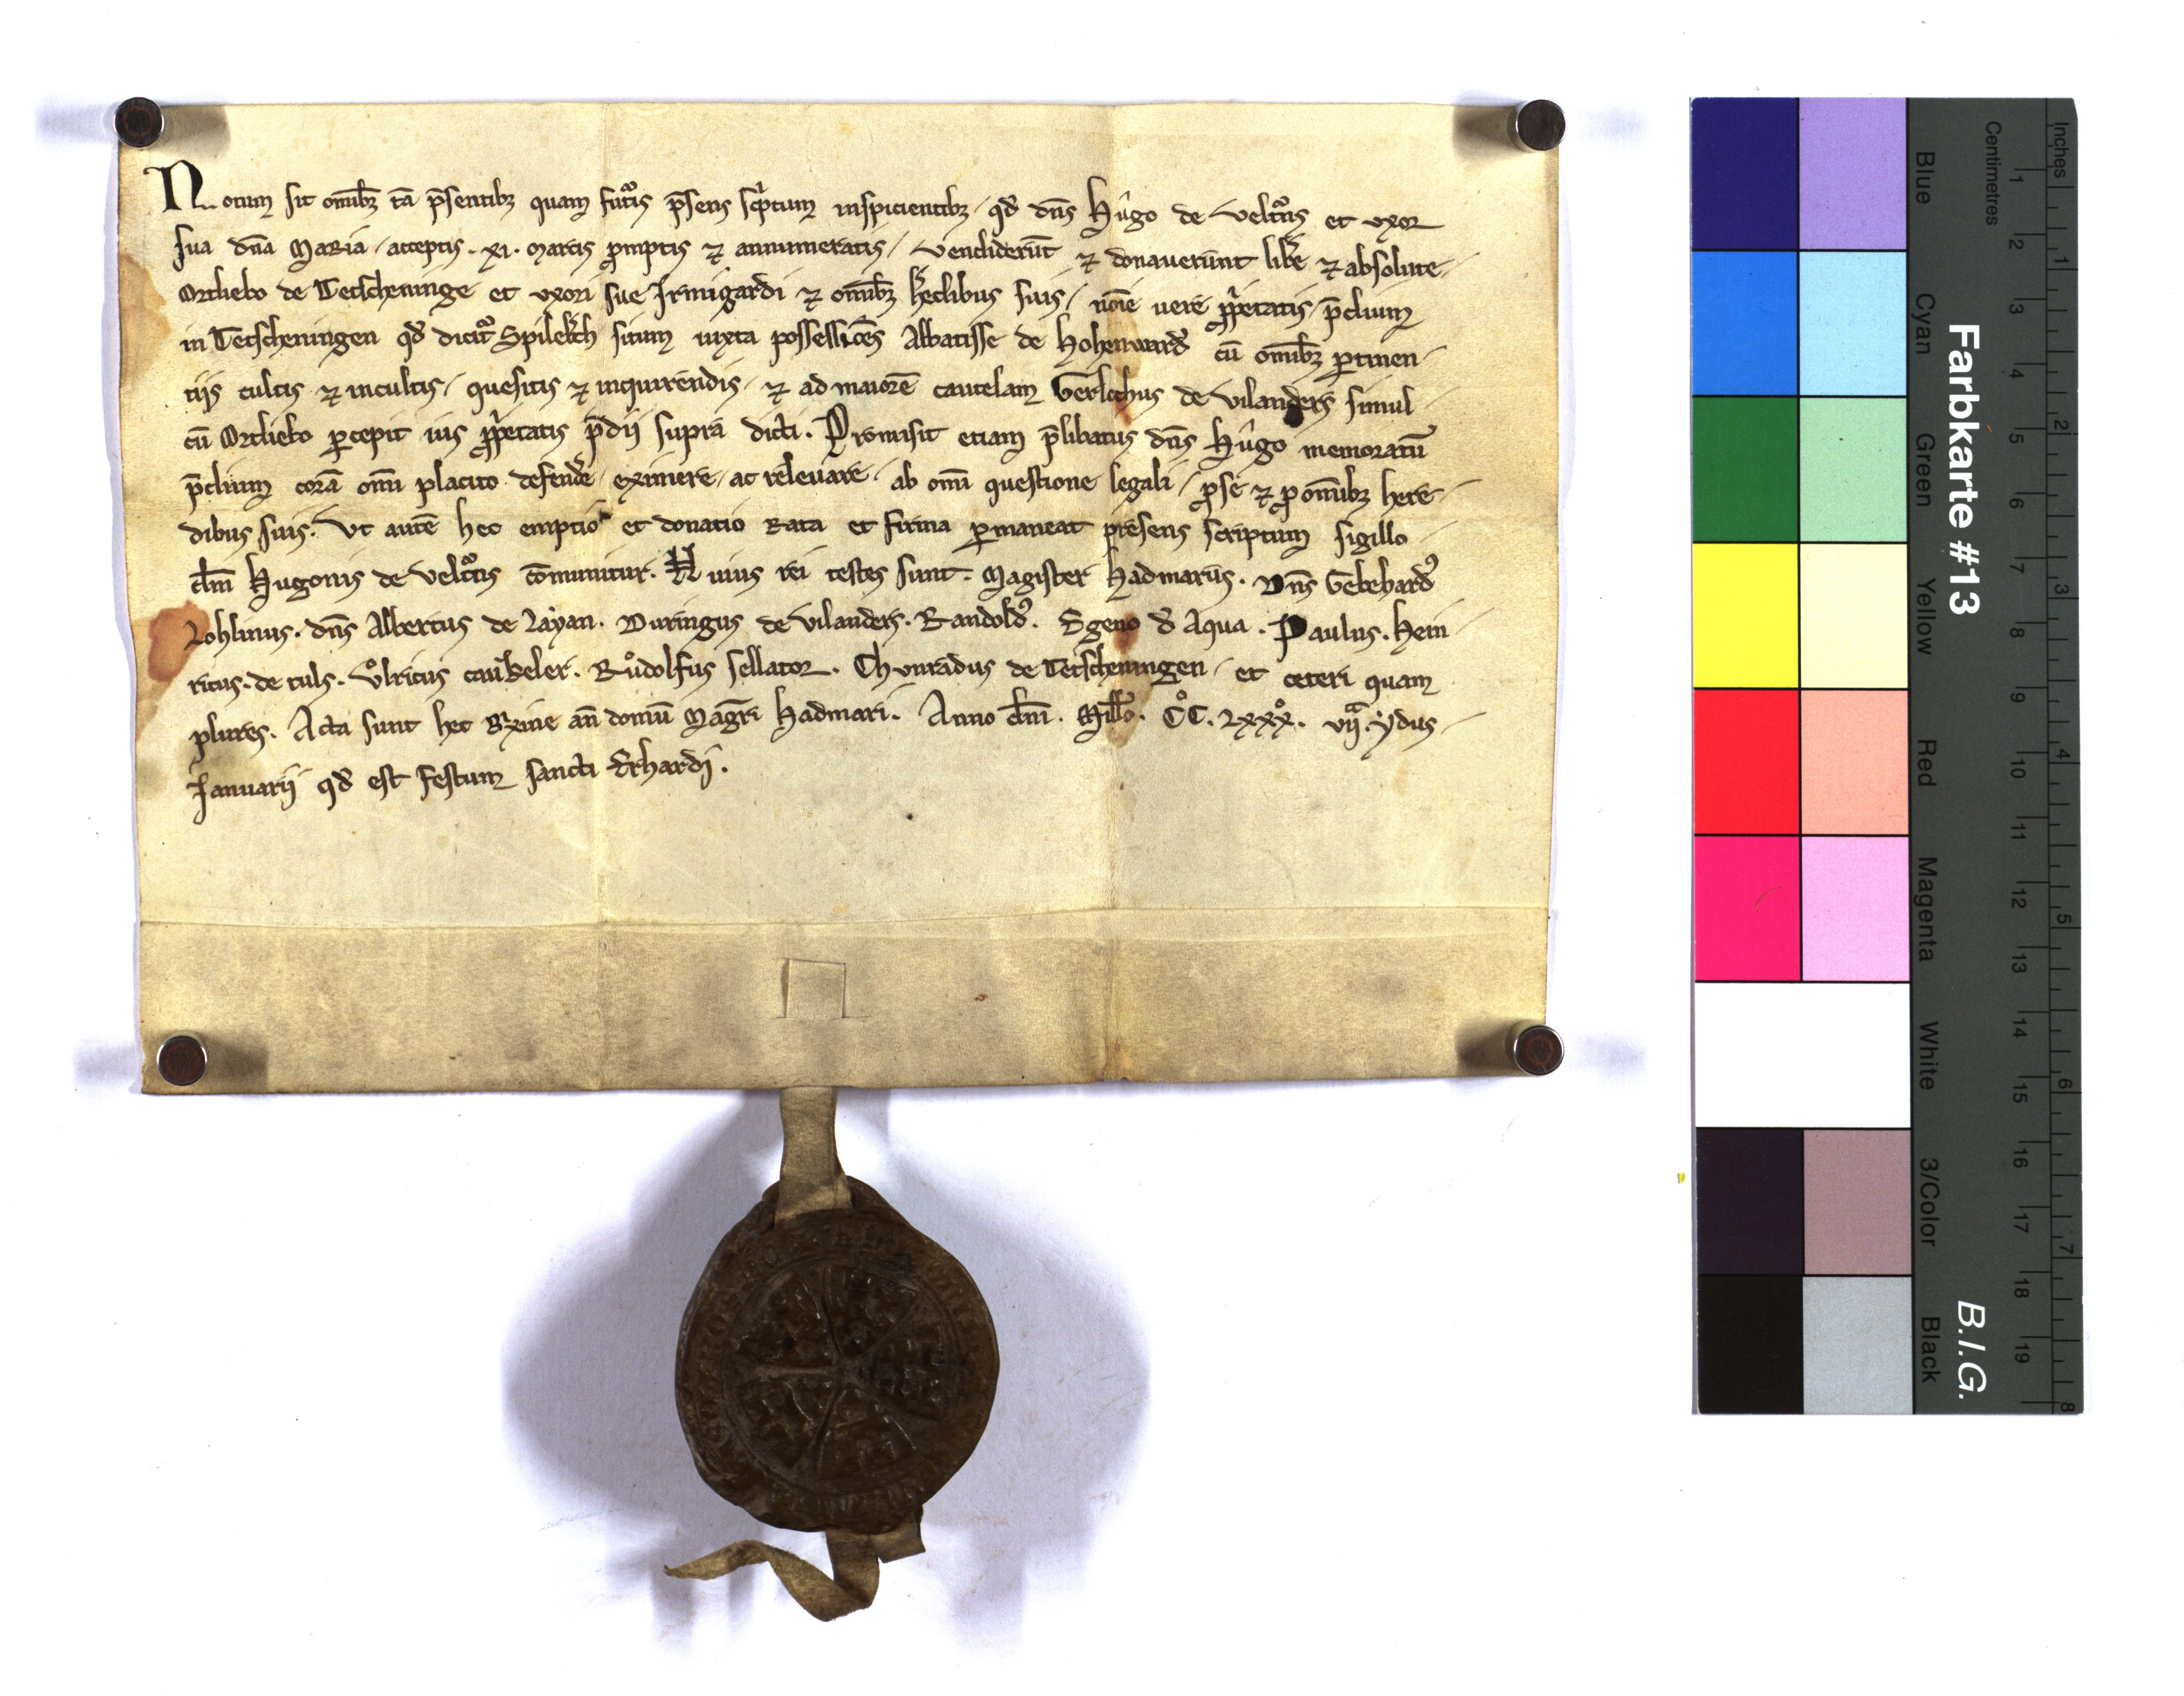 Notum sit omībꝫ tā p̄sentibꝫ quam futᷣis p̄sens sc̔ptum inspicientibꝫ / qđ dn̄s Hûgo de Veltᷣns et vxor
sua dn̄a Maria / acceptis . xi . marcis p̱mptis ⁊ annumeratis / vendiderūt ⁊ donauerunt libe᷑ ⁊ absolute /
Ortliebo de Tetscheninge et vxori sue Irmigardi ⁊ omībꝫ h̄edibus suis / noīe uere ꝓp̔etatis / p̄dium
in Tetscheningen qđ dicitᷣ Spilekch situm iuxta possessiōes Abbatisse de Hohenward᷑ cū omībꝫ ꝑtinen /
tijs cultis ⁊ incultis / quesitis ⁊ inquirendis / ⁊ ad maiorē cautelam Gerlochus de Vilanders simul /
cū Ortliebo ꝑcepit ius ꝓp̔etatis p̄dij supra dicti . Promisit etiam p̄libatus dn̄s Hûgo memoratū
p̄dium corā om̄i placito defende᷑ / eximere / ac releuare / ab om̄i questione legali / ꝓ se ⁊ ꝓ omībꝫ here /
dibus suis . Vt autē hec emptio et donatio rata et firma ꝑmaneat presens scriptum sigillo
dn̄i Hugonis de Veltᷣns cōmunitur . Huius rei testes sunt . Magister Hadmarus . Dn̄s Gebehardꝰ
Lohlinus . dn̄s Albertus de Layan . Duringus de Vilanders . Randoldꝰ . Egeno đ Aqua . Paulus . Hein /
ricus . de tuls . Vͦlricus caukeler . Růdolfus sellator . Chunradus de Tetscheningen / et ceteri quam
plures . Acta sunt hec Brixine an̄ domū Mag̅ri Hadmari . Anno dn̄i . Mill̅o . CͦC . Lxxxͦ . vijͣ . ydus /
Januarij qđ est festum sancti Erhardi .
Farbkarte #13
B.I.G.
Blue
Cyan
Green
Yellow
Red
Magenta
White
3/Color
Black
Centimetres
1 2 3 4 5 6 7 8 9 10 11 12 13 14 15 16 17 18 19
Inches
1 2 3 4 5 6 7 8